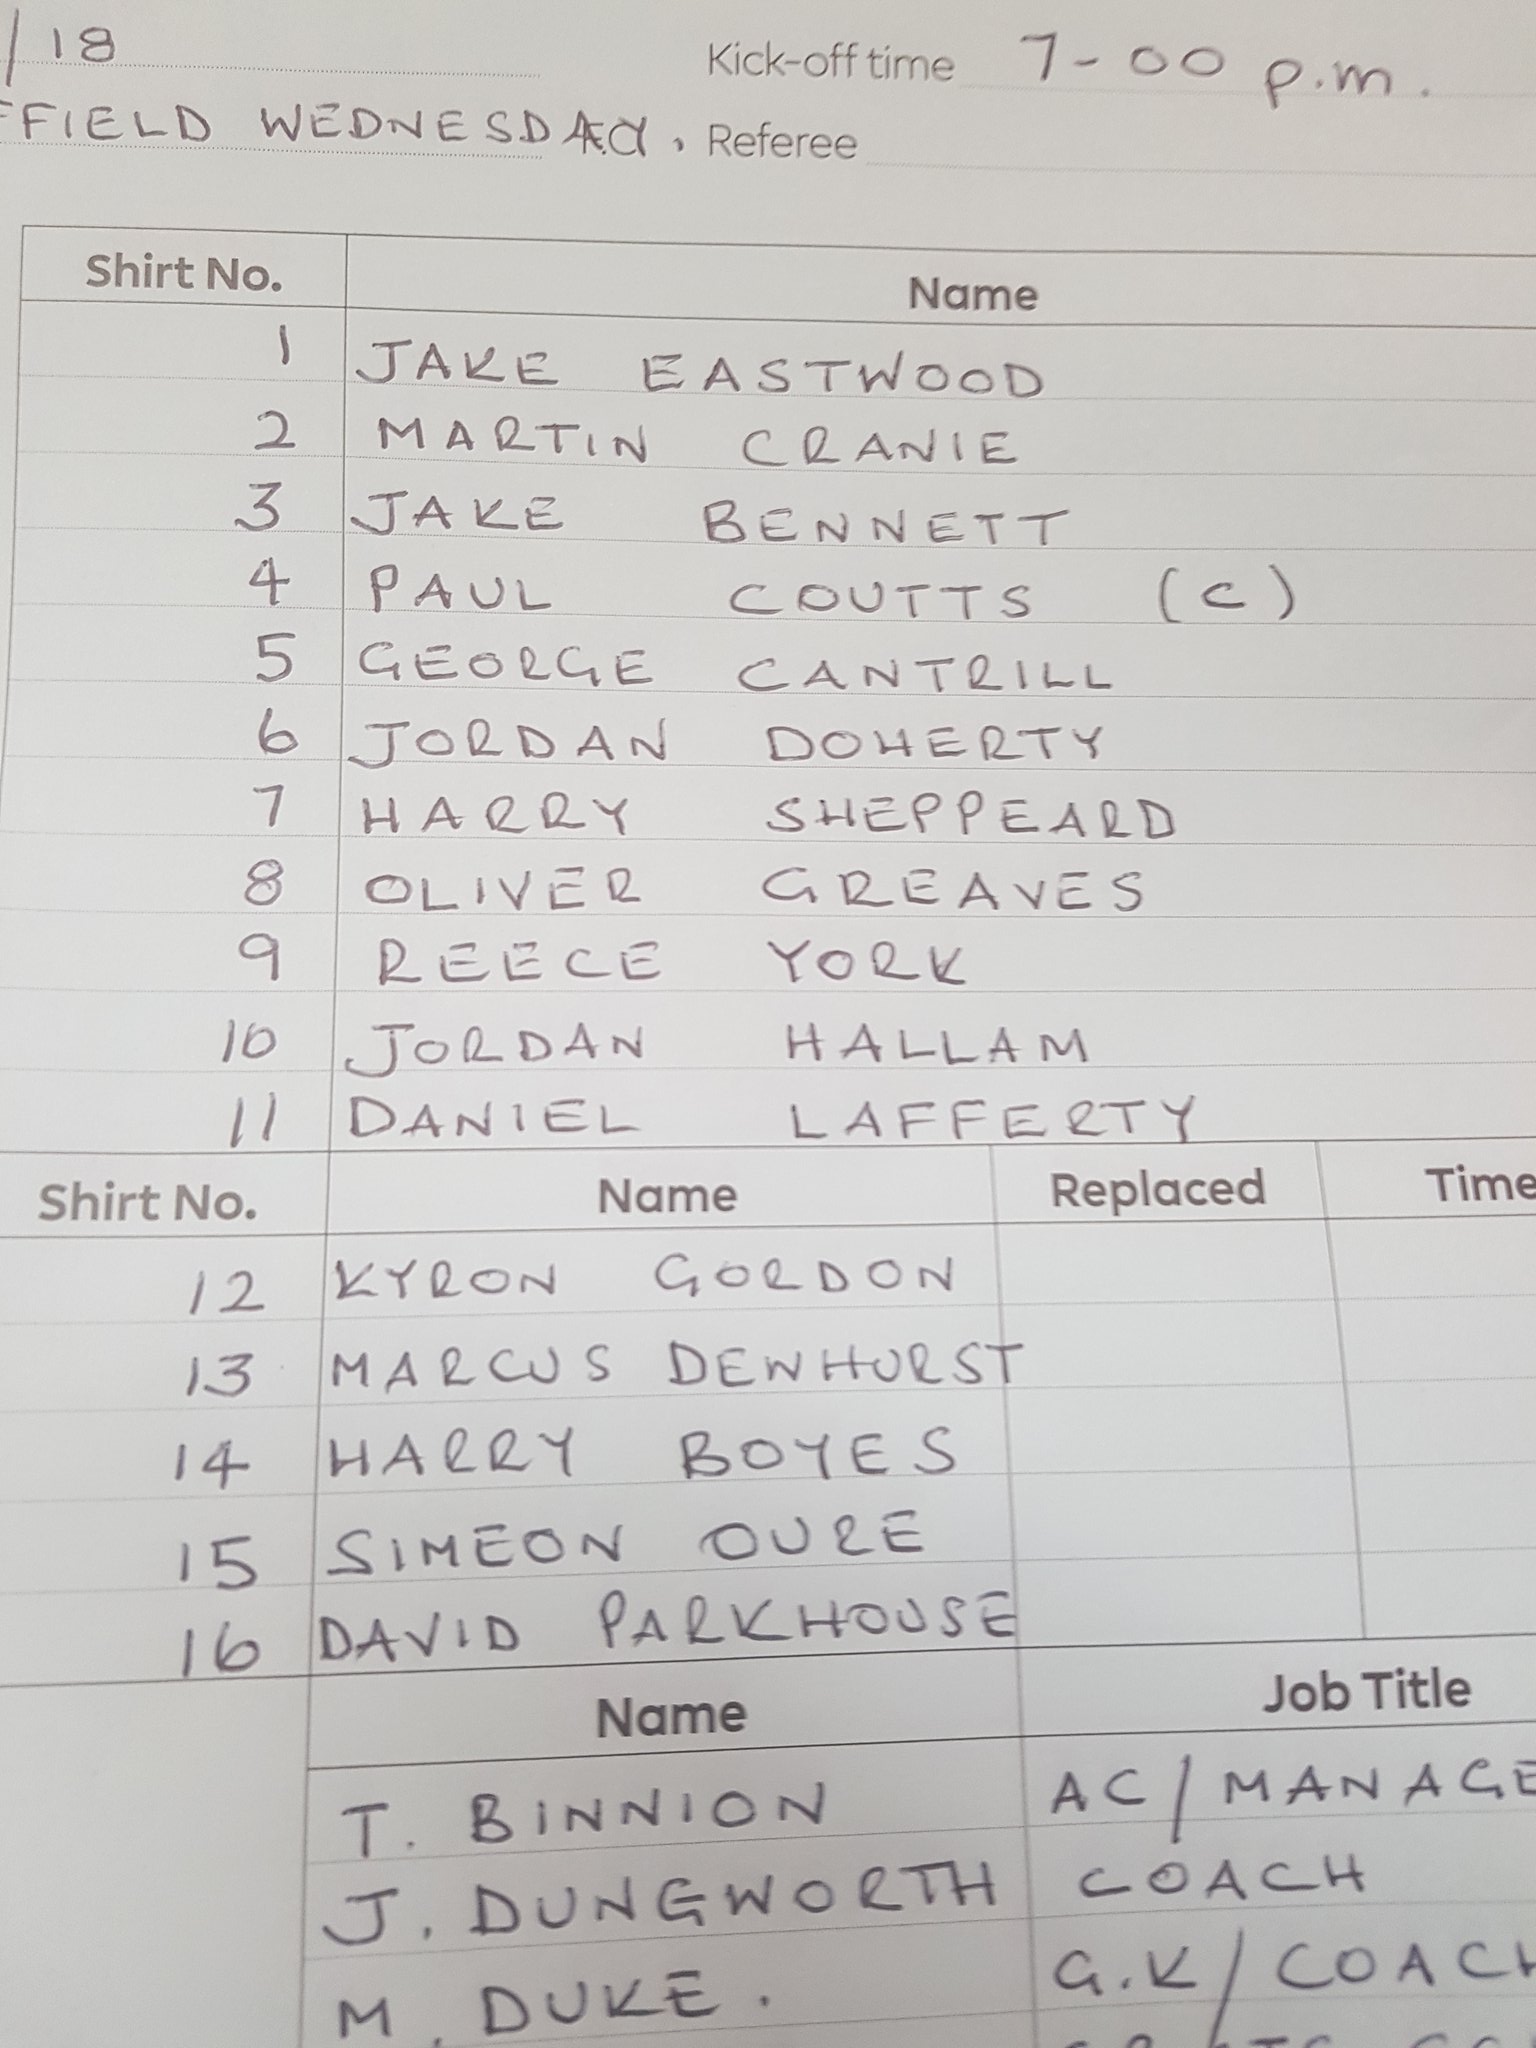 /18 Kick-off time 7-00 p.m.
FFIELD WEDNESDAY. Referee
Shirt No. Name
1 JAKE EASTWOOD
2 MARTIN CRANIE
3 JAKE BENNETT
4 PAUL COUTTS (C)
5 GEORGE CANTRILL
6 JORDAN DOHERTY
7 HARRY SHEPPEARD
8 OLIVER GREAVES
9 REECE YORK
10 JORDAN HALLAM
11 DANIEL LAFFERTY
Shirt No. Name Replaced Time
12 KYRON GORDON
13 MARCUS DEWHURST
14 HARRY BOYES
15 SIMEON OURE
16 DAVID PARKHOUSE
Name Job Title
T. BINNION AC/MANAGE
J. DUNGWORTH COACH
M. DUKE. G.K/COACH